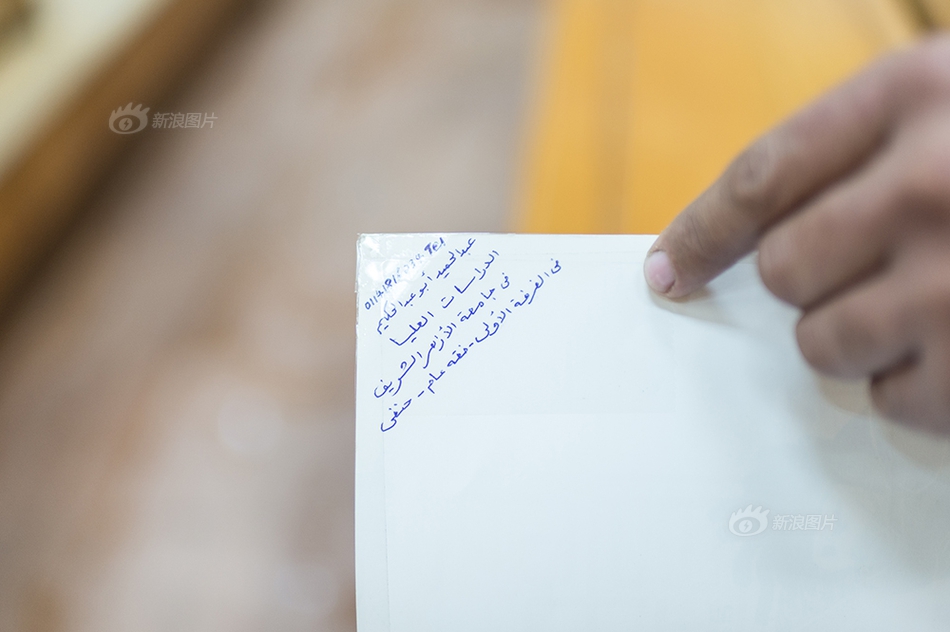 新浪图片
عبد الحميد أبو عبد الحكيم
الدراسات العليا
في جامعة الأزهر الشريف
في الفرقة الأولى - فقه عام - حنفى
新浪图片